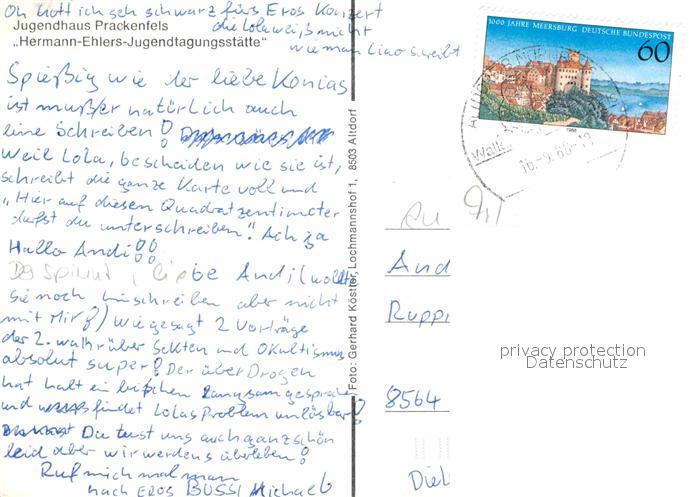 Oh Gott ich seh schwarz fürs Eros Konzert
die Lola weiß nicht
wie man Ciao schreibt
Jugendhaus Prackenfels
„Hermann-Ehlers-Jugendtagungsstätte"
Spießig wie der liebe Konias
ist mußßer natürlich auch
eine schreiben!
Weil Lola, bescheiden wie sie ist,
schreibt die ganze Karte voll und
„Hier auf diesen Quadratzentimeter
darfst du unterschreiben". Ach ja
Hallo Andi!!
Der spinnt, liebe Andi (wollte
sie noch hinschreiben aber nicht
mit Mir!) Wie gesagt 2 Vorträge
der 2. wahr über Sekten und Okultismus
absolut super! Der über Drogen
hat halt ein bißchen langsam gesprochen
und findet Lolas Problem unlösbar!
Du tust uns auch ganz schön
leid aber wir werdens überleben!
Ruf mich mal man
nach Eros BUSSI Michael
Foto: Gerhard Köstler, Lochmannshof 1, 8503 Altdorf
1000 JAHRE MEERSBURG DEUTSCHE BUNDESPOST
60
1988
16.-9.88-13
And
Ruppr
8564
privacy protection
Datenschutz